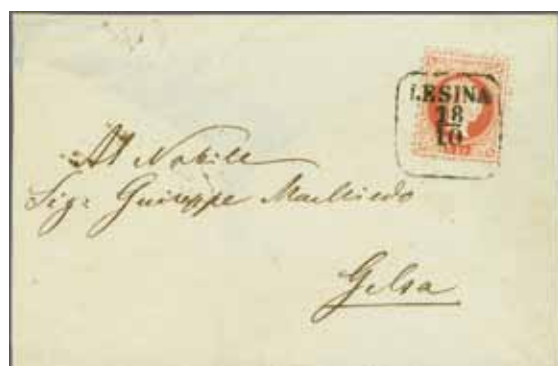 LESINA
18
10
Al Nobile
Sigr Giuseppe Machiedo
Gelsa